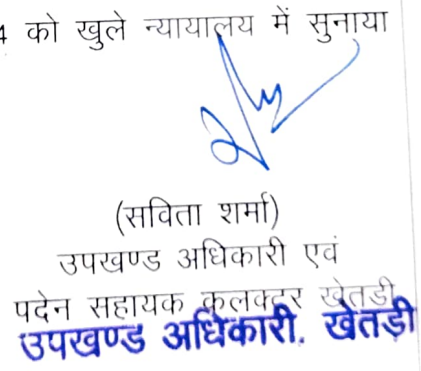 4 को खुले न्यायालय में सुनाया
(सविता शर्मा)
उपखण्ड अधिकारी एवं
पदेन सहायक कुलक्टर खेतडी
उपखण्ड अधिकारी. खेतड़ी